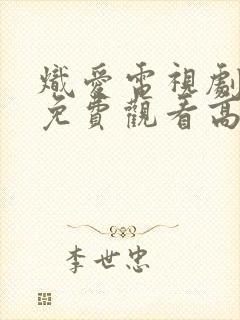 熾愛電視劇
免費觀看高
李世忠